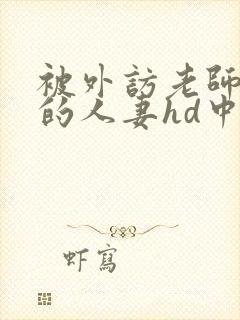 被外訪老師
的人妻hd中
虾寫